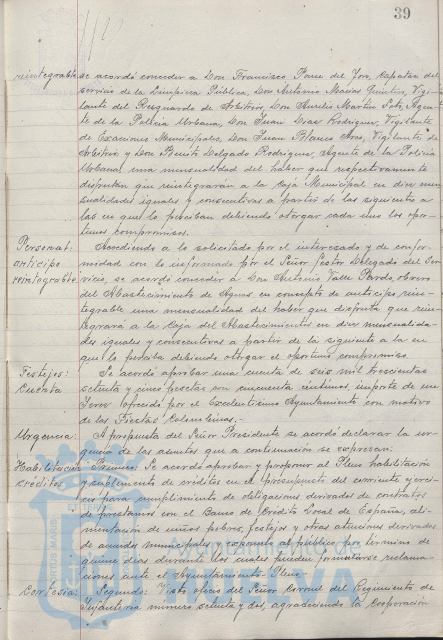 39
reintegrable se acordó conceder a Don Francisco Ponce del Toro, Capataz del
servicio de la Limpieza Pública, Don Antonio Macías Quintero, Vigi-
lante del Resguardo de Arbitrios, Don Aurelio Martín Soto, Agen-
te de la Policía Urbana, Don Juan Díaz Rodríguez, Vigilante
de Exacciones Municipales, Don Juan Blanco, Vigilante de
Arbitrios y Don Benito Delgado Rodríguez, Agente de la Policía
Urbana una mensualidad del haber que respectivamente
disfrutan que reintegrarán a la Caja Municipal en diez men-
sualidades iguales y consecutivas a partir de las siguientes a
las en que lo perciban debiendo otorgar cada uno los opor-
tunos compromisos.
Personal: Accediendo a lo solicitado por el interesado y de confor-
anticipo midad con lo informado por el Señor Gestor Delegado del Ser-
reintegrable vicio, se acordó conceder a Don Antonio Valle Pardo, obrero
del Abastecimiento de Aguas en concepto de anticipo rein-
tegrable una mensualidad del haber que disfruta que rein-
tegrará a la Caja del Abastecimiento en diez mensualida-
des iguales y consecutivas a partir de la siguiente a la en
que lo perciba debiendo otorgar el oportuno compromiso.
Festejos: Se acordó aprobar una cuenta de seis mil trescientas
Cuenta setenta y cinco pesetas con cincuenta céntimos, importe de un
ofrecido por el Excelentísimo Ayuntamiento con motivo
de las Fiestas Colombinas.-
Urgencia: A propuesta del Señor Presidente se acordó declarar la ur-
gencia de los asuntos que a continuación se expresan:
Habilitación Primero: Se acordó aprobar y proponer al Pleno habilitación
creditos y suplemento de créditos en el presupuesto del corriente ejerci-
cio para cumplimiento de obligaciones derivadas de contratos
de préstamos con el Banco de Crédito Local de España, ali-
mentación de niños pobres, festejos y otras atenciones derivadas
de acuerdos municipales y exponerlo al público por término de
quince días durante los cuales pueden formularse reclama-
ciones ante el Ayuntamiento Pleno.-
Cortesia: Segundo: Visto oficio del Señor Coronel del Regimiento de
Infantería número setenta y dos, agradeciendo la Corporación
Ayuntamiento de
HUELVA